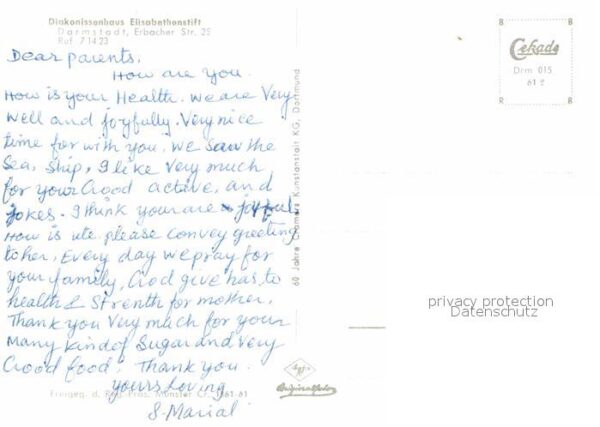 Diakonissenhaus Elisabethenstift
Darmstadt, Erbacher Str. 25
Ruf 71423
Dear parents.
How are you.
How is your Health. We are Very
Well and joyfully. Very nice
time for with you. We saw the
Sea, Ship, I like Very much
for your Good active, and
Jokes. I think your are joyful.
How is ute please convey greeting
to her. Every day we pray for
your family, God give has to
health & Strenth for mother.
Thank you Very much for your
Many kind of Sugar and Very
Good food. Thank you.
yours Loving
S. Marial
Freigeg. d. Reg.-Präs. Münster
60 Jahre Cramers Kunstanstalt KG, Dortmund
B B
Cekade
Drm 015
61
R B
privacy protection
Datenschutz
Agfa
Originalfoto